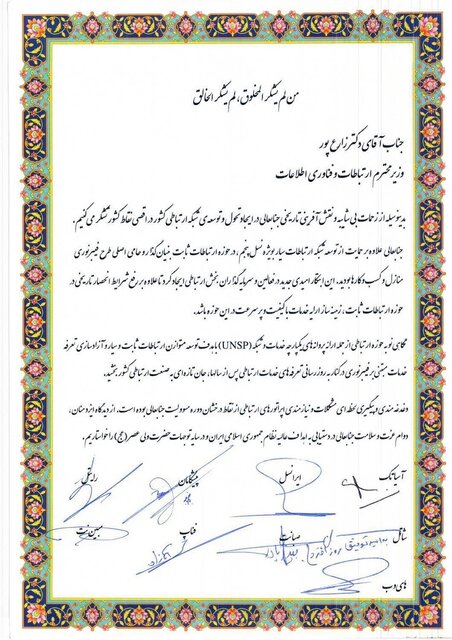 من لم یشکر المخلوق، لم یشکر الخالق
جناب آقای دکتر زارع پور
وزیر محترم ارتباطات و فناوری اطلاعات
بدینوسیله از زحمات بی شایبه و نقش آفرینی تاریخی جنابعالی در ایجاد تحول و توسعه ی شبکه ارتباطی کشور در اقصی نقاط کشور تشکر می کنیم.
جنابعالی علاوه بر حمایت از توسعه شبکه ارتباطات سیار بویژه نسل پنجم، در حوزه ارتباطات ثابت بنیان گذار و حامی اصلی طرح فیبرنوری
منازل و کسب و کارها بودید. این ابتکار امیدی جدید در فعالین و سرمایه گذاران بخش ارتباطی ایجاد کرد تا علاوه بر رفع شرایط انحصار تاریخی در
حوزه ارتباطات ثابت، زمینه ساز ارائه خدمات با کیفیت و پر سرعت در این حوزه باشد.
نگاهی نو به حوزه ارتباطی از جمله ارائه پروانه های یکپارچه خدمات و شبکه (UNSP) با هدف توسعه متوازن ارتباطات ثابت و سیار و آزادسازی تعرفه
خدمات مبتنی بر فیبرنوری در کنار به روزرسانی تعرفه های خدمات ارتباطی پس از سالها، جان تازه ای به صنعت ارتباطی کشور بخشید.
دغدغه مندی و پیگیری لحظه ای مشکلات و نیازمندی اپراتورهای ارتباطی از نقاط درخشان دوره مسوولیت جنابعالی بوده است. از دیدگاه ایزد منان،
دوام عزت و سلامت جنابعالی در دستیابی به اهداف عالیه نظام جمهوری اسلامی ایران و در سایه توجهات حضرت ولی عصر (عج) را خواستاریم.
آسیاتک ایرانسل پیشگامان رایتل
شاتل صبانت فناپ مبین نت
های وب